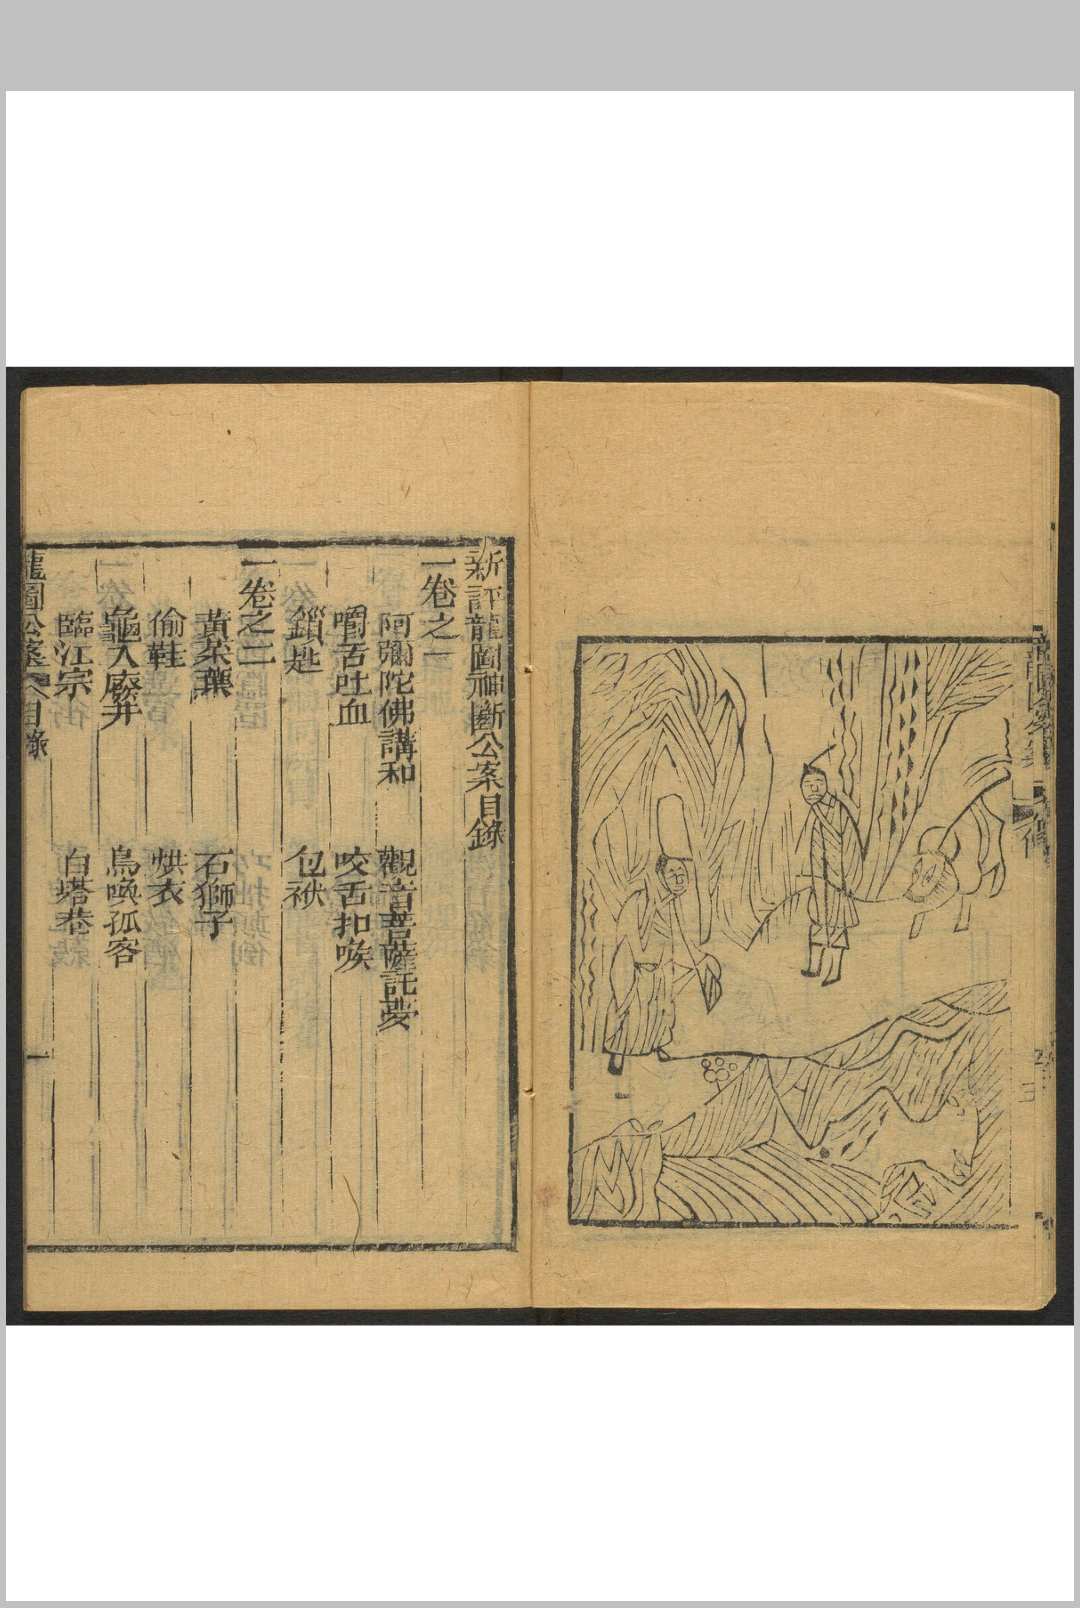 新評龍圖神斷公案目錄
一卷之一
阿彌陀佛講和 觀音菩薩託夢
嚼舌吐血 咬舌扣喉
鎖匙 包袱
一卷之二
黃菜葉 石獅子
偷鞋 烘衣
龜入廢井 鳥喚孤客
臨江亭 白塔巷
龍圖公案 目錄
一